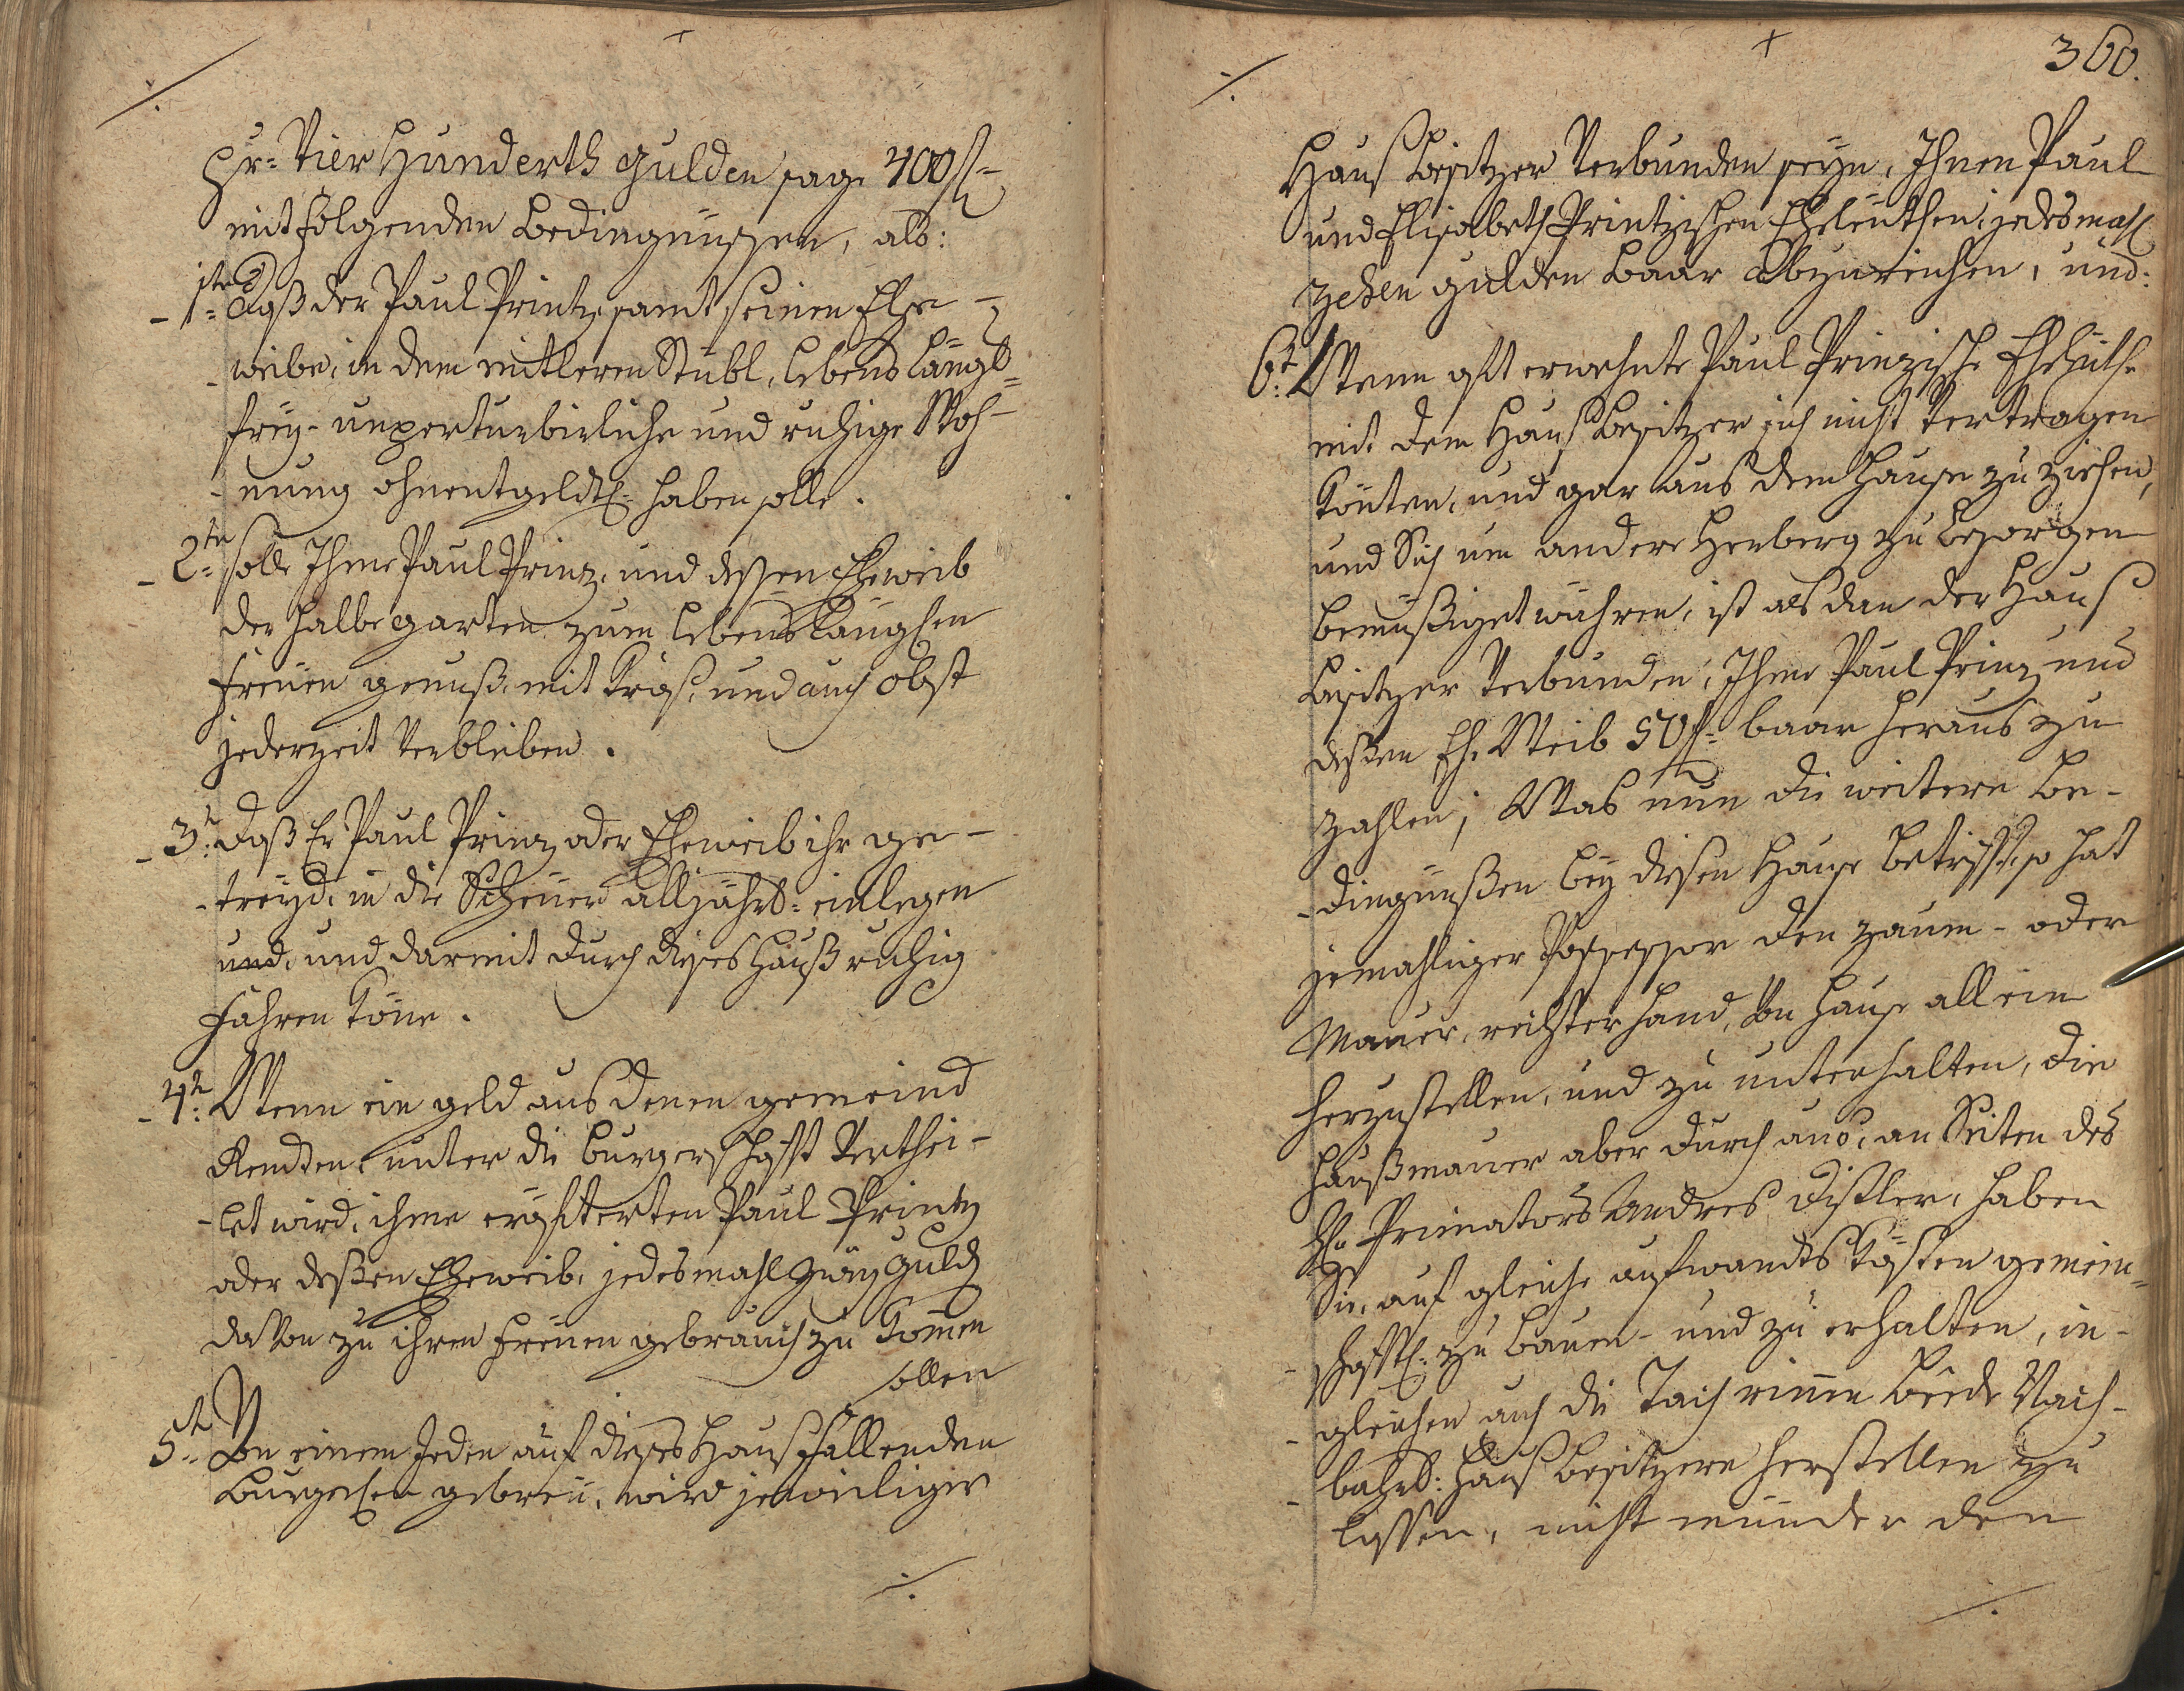 pr: Vier Hunderth Gulden sage 400 fl
mit folgenden Bedingnüssen, als:
1tens daß der Paul Printz samt seinen Ehe-
weibe, in dem mitleren Stübl, lebens längl:
freÿ- unperturbirliche und ruhige Woh-
nung ohnentgeldtl: haben solle.
2tn solle Ihme Paul Prinz, und dessen Eheweib
der halbe garten zum lebenslänglichen
freÿen genuß, mit Graß, und auch obst
jederzeit Verbleiben.
3tn daß Er Paul Prinz oder Eheweib ihr ge-
treÿd, in die Scheüer alljährl: einlegen
und, und darmit durch dieses Hauß ruhig
fahren köne.
4tn Wenn ein geld aus denen gemeind
Rendten, unter die burgerschafft Verthei-
let wird, ihme erösterten Paul Printz
oder deßen Eheweib, jedesmahl zweÿ Guld
da Von zu ihren freÿen gebrauch zu komen
sollen
5tn Von einem Jeden auf dieses Hauß fallenden
Burgerlichen gebreü, wird jeweiliger
360.
Hauß besitzer Verbunden seÿn, Ihnen Paul
und Elisabeth Printzischen Eheleüthen, jedesmahl
zehen gulden baar abzureichen, und:
6t: Wenn osst erwehnte Paul Prinzische Eheleüthe
mit dem Hauß besitzer sich nicht Vertragen
könten, und gar aus dem Hause zu ziehen,
und Sich um andere Herberg zu besorgen
bemüßiget wühren, ist als dan der Hauß
besitzer Verbunden, Ihme Paul Prinz und
deßen Ehe Weib 50 f: baar heraus zu
zahlen; Was nun die weitere be-
dingnüßen beÿ diesen Hause betrifft, so hat
jemahliger Possessor den zaum- oder
Mauer, rechter hand, Von Hause allein
herzustellen, und zu unterhalten, die
Haußmauer aber durch aus, an Seiten des
H: Primators Andres Distler, haben
Sie, auf gleiche aufwandts kösten gemein-
schafftl: zu bauen- und zu erhalten, in-
gleichen auch die Tachrinnen beede Nach-
bahrl: Hauß besitzere herstellen zu
lassen, nicht münder den